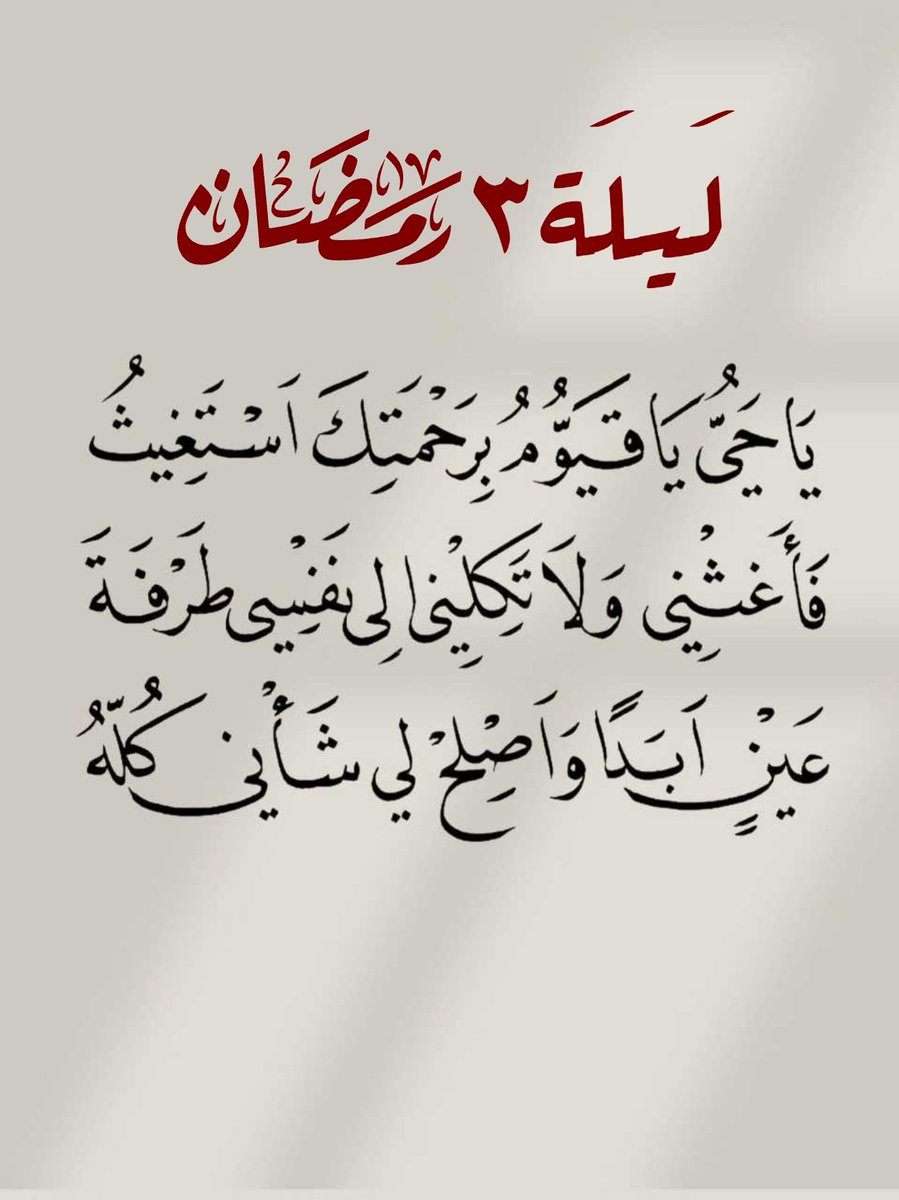 لَيلَة ٣ رمَضَان
يَا حَيُّ يَا قَيَوُّمُ بِرَحْمَتِكَ اَسْتَغِيثُ
فَأَغِثْنِي وَلَا تَكِلْنِي اِلِى نَفْسِي طَرْفَةَ
عَيْنٍ اَبَدًا وَاَصْلِحْ لِي شَأْنِي كُلّهُ